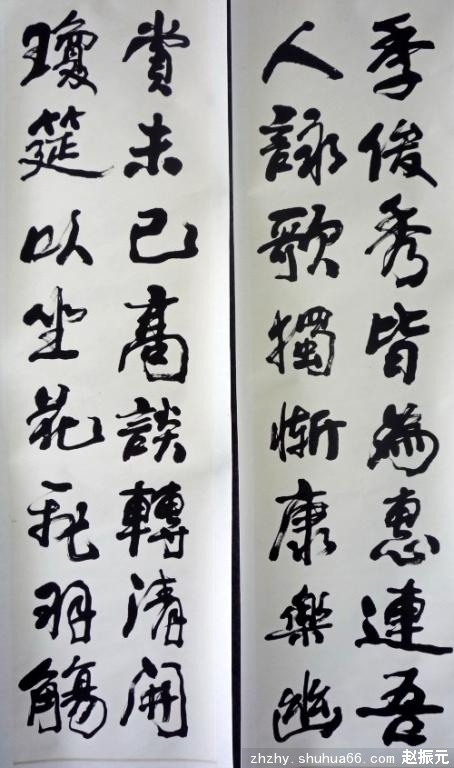 季俊秀皆為惠連吾
人詠歌獨慚康樂幽
賞未已高談轉清開
瓊筵以坐花飛羽觴
zhzhy.shuhua66.com 赵振元